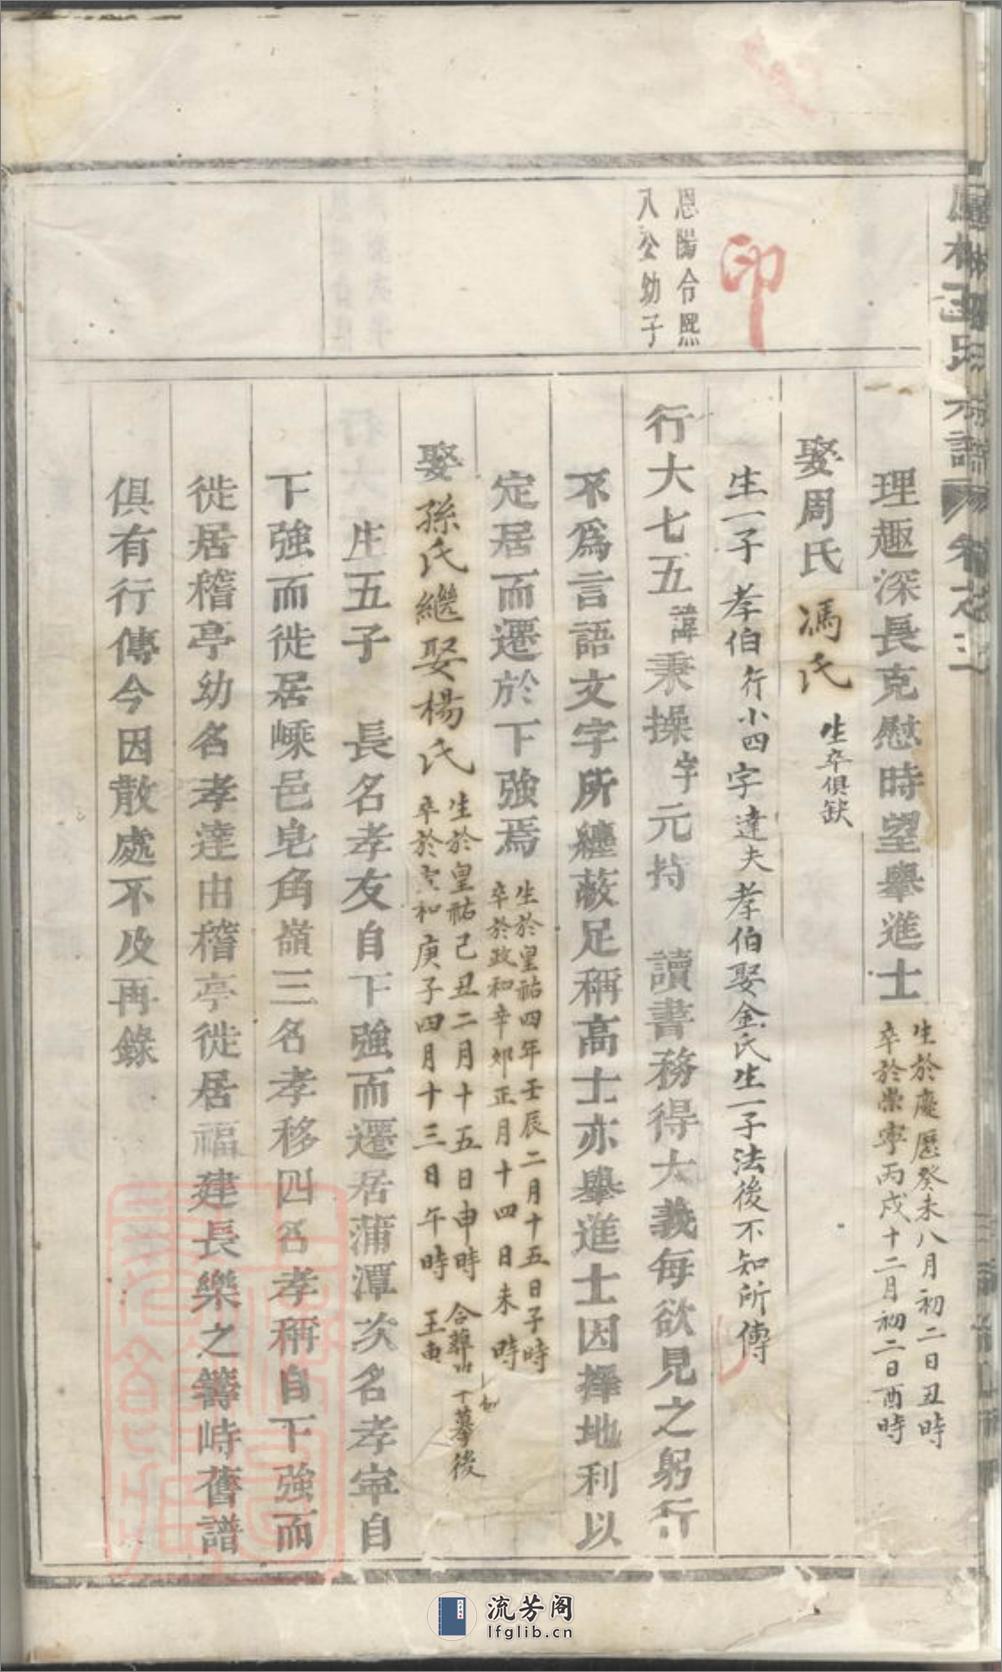 理趣深長克慰時望舉進士
生於慶歷癸未八月初二日丑時
卒於崇寧丙戌十二月初二日酉時
娶周氏 馮氏 生卒俱缺
生一子 孝伯行小四字達夫孝伯娶金氏生一子法後不知所傳
印
恩陽令熙
八公幼子
行大七五諱秉操字元持 讀書務得大義每欲見之躬行
不為言語文字所纏蔽足稱高士亦舉進士因擇地利以
定居而遷於下強焉
生於皇祐四年壬辰二月十五日子時
卒於政和辛夘正月十四日未時
娶孫氏繼娶楊氏
生於皇祐己丑二月十五日申時 合葬山下墓後
卒於宣和庚子四月十三日午時
生五子 長名孝友自下強而遷居蒲潭次名孝寧自
下強而徙居嵊邑皂角嶺三名孝移四名孝稱自下強而
徙居稽亭幼名孝達由稽亭徙居福建長樂之籌峙舊譜
俱有行傳今因散處不及再錄
流芳阁
lfglib.cn